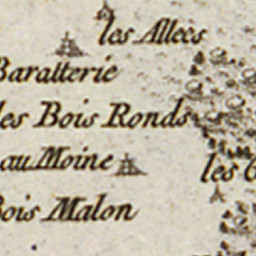 les Allees
Baratterie
les Bois Ronds
au Moine
les
Bois Malon